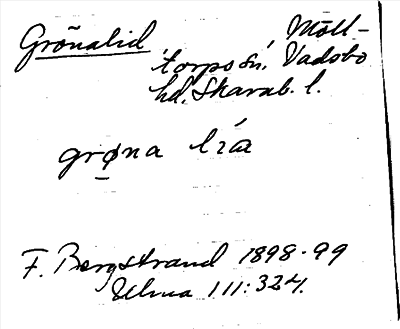 Grönalid Möll-
torps sn. Vadsbo
hd. Skarab. l.
grøna lía
F. Bergstrand 1898-99
Ulma 111:324.